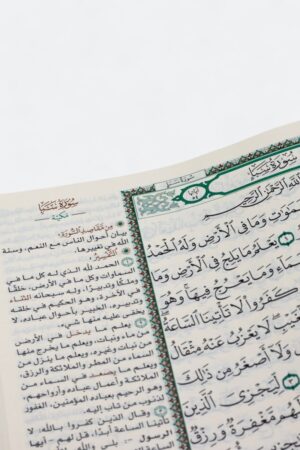 سُورَةُ سَبَإٍ
مكية
من مقاصد السورة:
بيان أحوال الناس مع النعم، وسنة
الله في تغييرها.
التفسير:
الحمد لله الذي له كل ما في
السماوات وكل ما في الأرض، خلقًا
وملكًا وتدبيرًا، وله سبحانه الثناء
في الآخرة، وهو الحكيم في خلقه
وتدبيره، الخبير بأحوال عباده، لا
يعلم ما يدخل في الأرض
من ماء ونبات، ويعلم ما يخرج منها
من نبات وغيره، ويعلم ما ينزل من
السماء من المطر والملائكة والرزق
ويعلم ما يصعد في السماء من
الملائكة وأعمال عباده وأرواحهم
الرحيم بعباده المؤمنين، الغفور
لذنوب من تاب إليه.
وقال الذين كفروا بالله: لا
تأتينا الساعة أبدًا، قل لهم - أيها
الرسول -: بلى والله
سُورَةُ سَبَإٍ
ٱللَّهِ ٱلرَّحْمَٰنِ ٱلرَّحِيمِ
وَمَا فِي ٱلْأَرْضِ وَلَهُ ٱلْحَمْدُ
١ يَعْلَمُ مَا يَلِجُ فِي ٱلْأَرْضِ وَمَا
مَآءِ وَمَا يَعْرُجُ فِيهَا وَهُوَ
كَفَرُوا۟ لَا تَأْتِينَا ٱلسَّاعَةُ
لَا يَعْزُبُ عَنْهُ مِثْقَالُ
وَلَآ أَصْغَرُ مِن ذَٰلِكَ
٣ لِّيَجْزِيَ ٱلَّذِينَ
لَهُم مَّغْفِرَةٌ وَرِزْقٌ